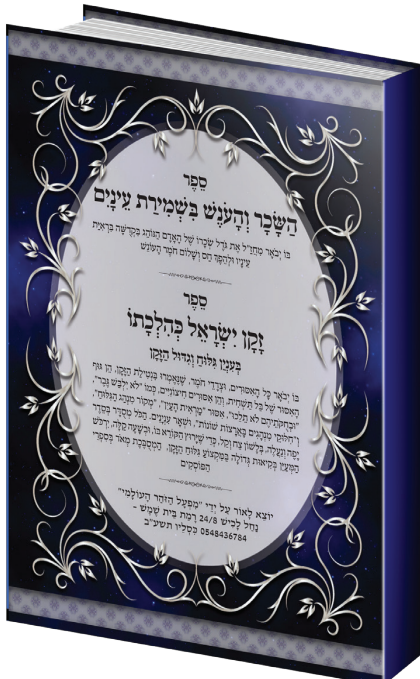 סֵפֶר
הַשָּׂכָר וְהָעֹנֶשׁ בִּשְׁמִירַת עֵינַיִם
בּוֹ יְבֹאַר מֵחֲזַ"ל אֶת גֹּדֶל שְׂכָרוֹ שֶׁל הָאָדָם הַנּוֹהֵג בִּקְדֻשָּׁה בִּרְאִיַּת
עֵינָיו וּלְהֵפֶךְ חַס וְשָׁלוֹם חֹמֶר הָעוֹנֶשׁ
סֵפֶר
זְקַן יִשְׂרָאֵל כְּהִלְכָתוֹ
בְּעִנְיַן גִּלּוּחַ וְגִדּוּל הַזָּקָן
בּוֹ יְבֹאַר כָּל הָאִסּוּרִים, וּצְדָדֵי חֹמֶר, שֶׁנֶּאֶמְרוּ בִּנְטִילַת הַזָּקָן, הֵן גּוּף
הָאִסּוּר שֶׁל בַּל תַּשְׁחִית, וְהֵן אִסּוּרִים חִיצוֹנִיִּים, כְּמוֹ "לֹא יִלְבַּשׁ גֶּבֶר",
"וּבְחֻקֹּתֵיהֶם לֹא תֵלֵכוּ", אִסּוּר "מַרְאִית הָעַיִן", "מְקוֹר מִנְהַג הַגִּלּוּחַ",
וְ"חִלּוּקֵי מִנְהָגִים בָּאֲרָצוֹת שׁוֹנוֹת", וּשְׁאָר עִנְיָנִים. הַכֹּל מְסֻדָּר בְּסֵדֶר
יָפֶה וְנַעֲלֶה, בְּלָשׁוֹן צַח וְקַל, כְּדֵי שֶׁיָּרוּץ הַקּוֹרֵא בּוֹ. וּבְשָׁעָה קַלָּה, יִרְכֹּשׁ
הַמְעַיֵּן בְּקִיאוּת גְּדוֹלָה בְּמִקְצוֹעַ גִּלּוּחַ הַזָּקָן, הַמְסֻבֶּכֶת מְאֹד בְּסִפְרֵי
הַפּוֹסְקִים
יוֹצֵא לָאוֹר עַל יְדֵי "מִפְעַל הַזֹּהַר הָעוֹלָמִי"
נַחַל לָכִישׁ 24/8 רָמַת בֵּית שֶׁמֶשׁ -
0548436784 כִּסְלֵיו תשע"ב